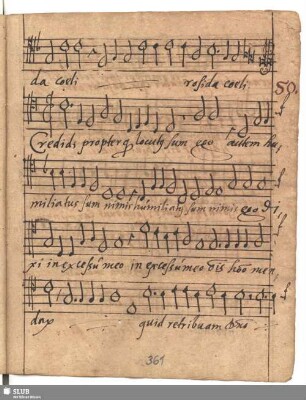 da coeli rosida coeli
50.
Credidi propter q locutꝯ sum ego autem hu
miliatus sum nimis humiliatꝯ sum nimis ego di
xi in excessu meo in excessu meo ois hoo men
dax quid retribuam dno
361
SLUB